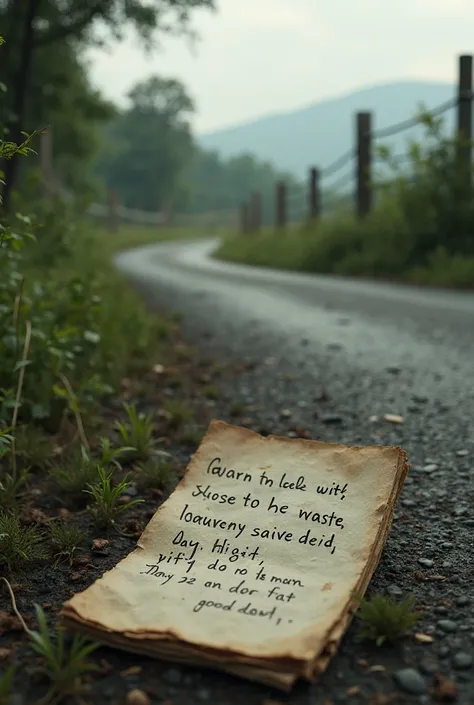 Gvarn tn lek wit,
Shose to he waste,
loauveny saive deid,
Day. Higit,
yift do ro ts man
22 an dor fat
good dowl,